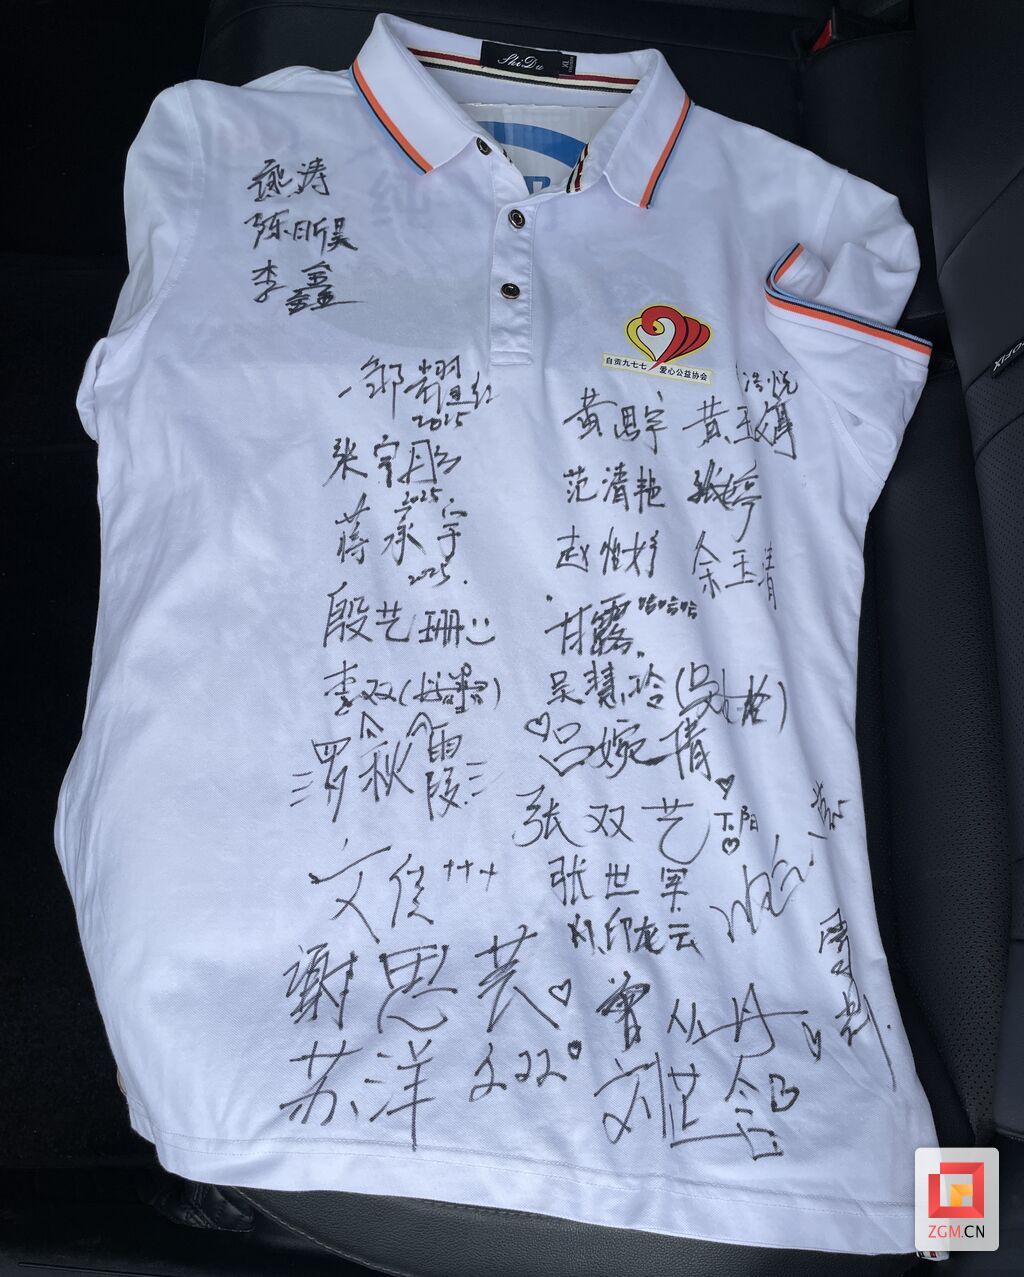 ShiDu
XL
自贡九七七 爱心公益协会
涛
陈昕昊
李鑫
2025
浩悦
黄思宇
黄玉娟
张宇彤
2025.
范清艳
张婷
蒋承宇
2025.
赵怡婷
余玉清
殷艺珊
甘露 哈哈哈
李双
吴慧玲
罗秋霞
吕婉倩
张双艺
T.阳
文俊
张世军
刘印龙云
谢思芸
曾丛丹
苏洋
刘芷含
ZGM.CN